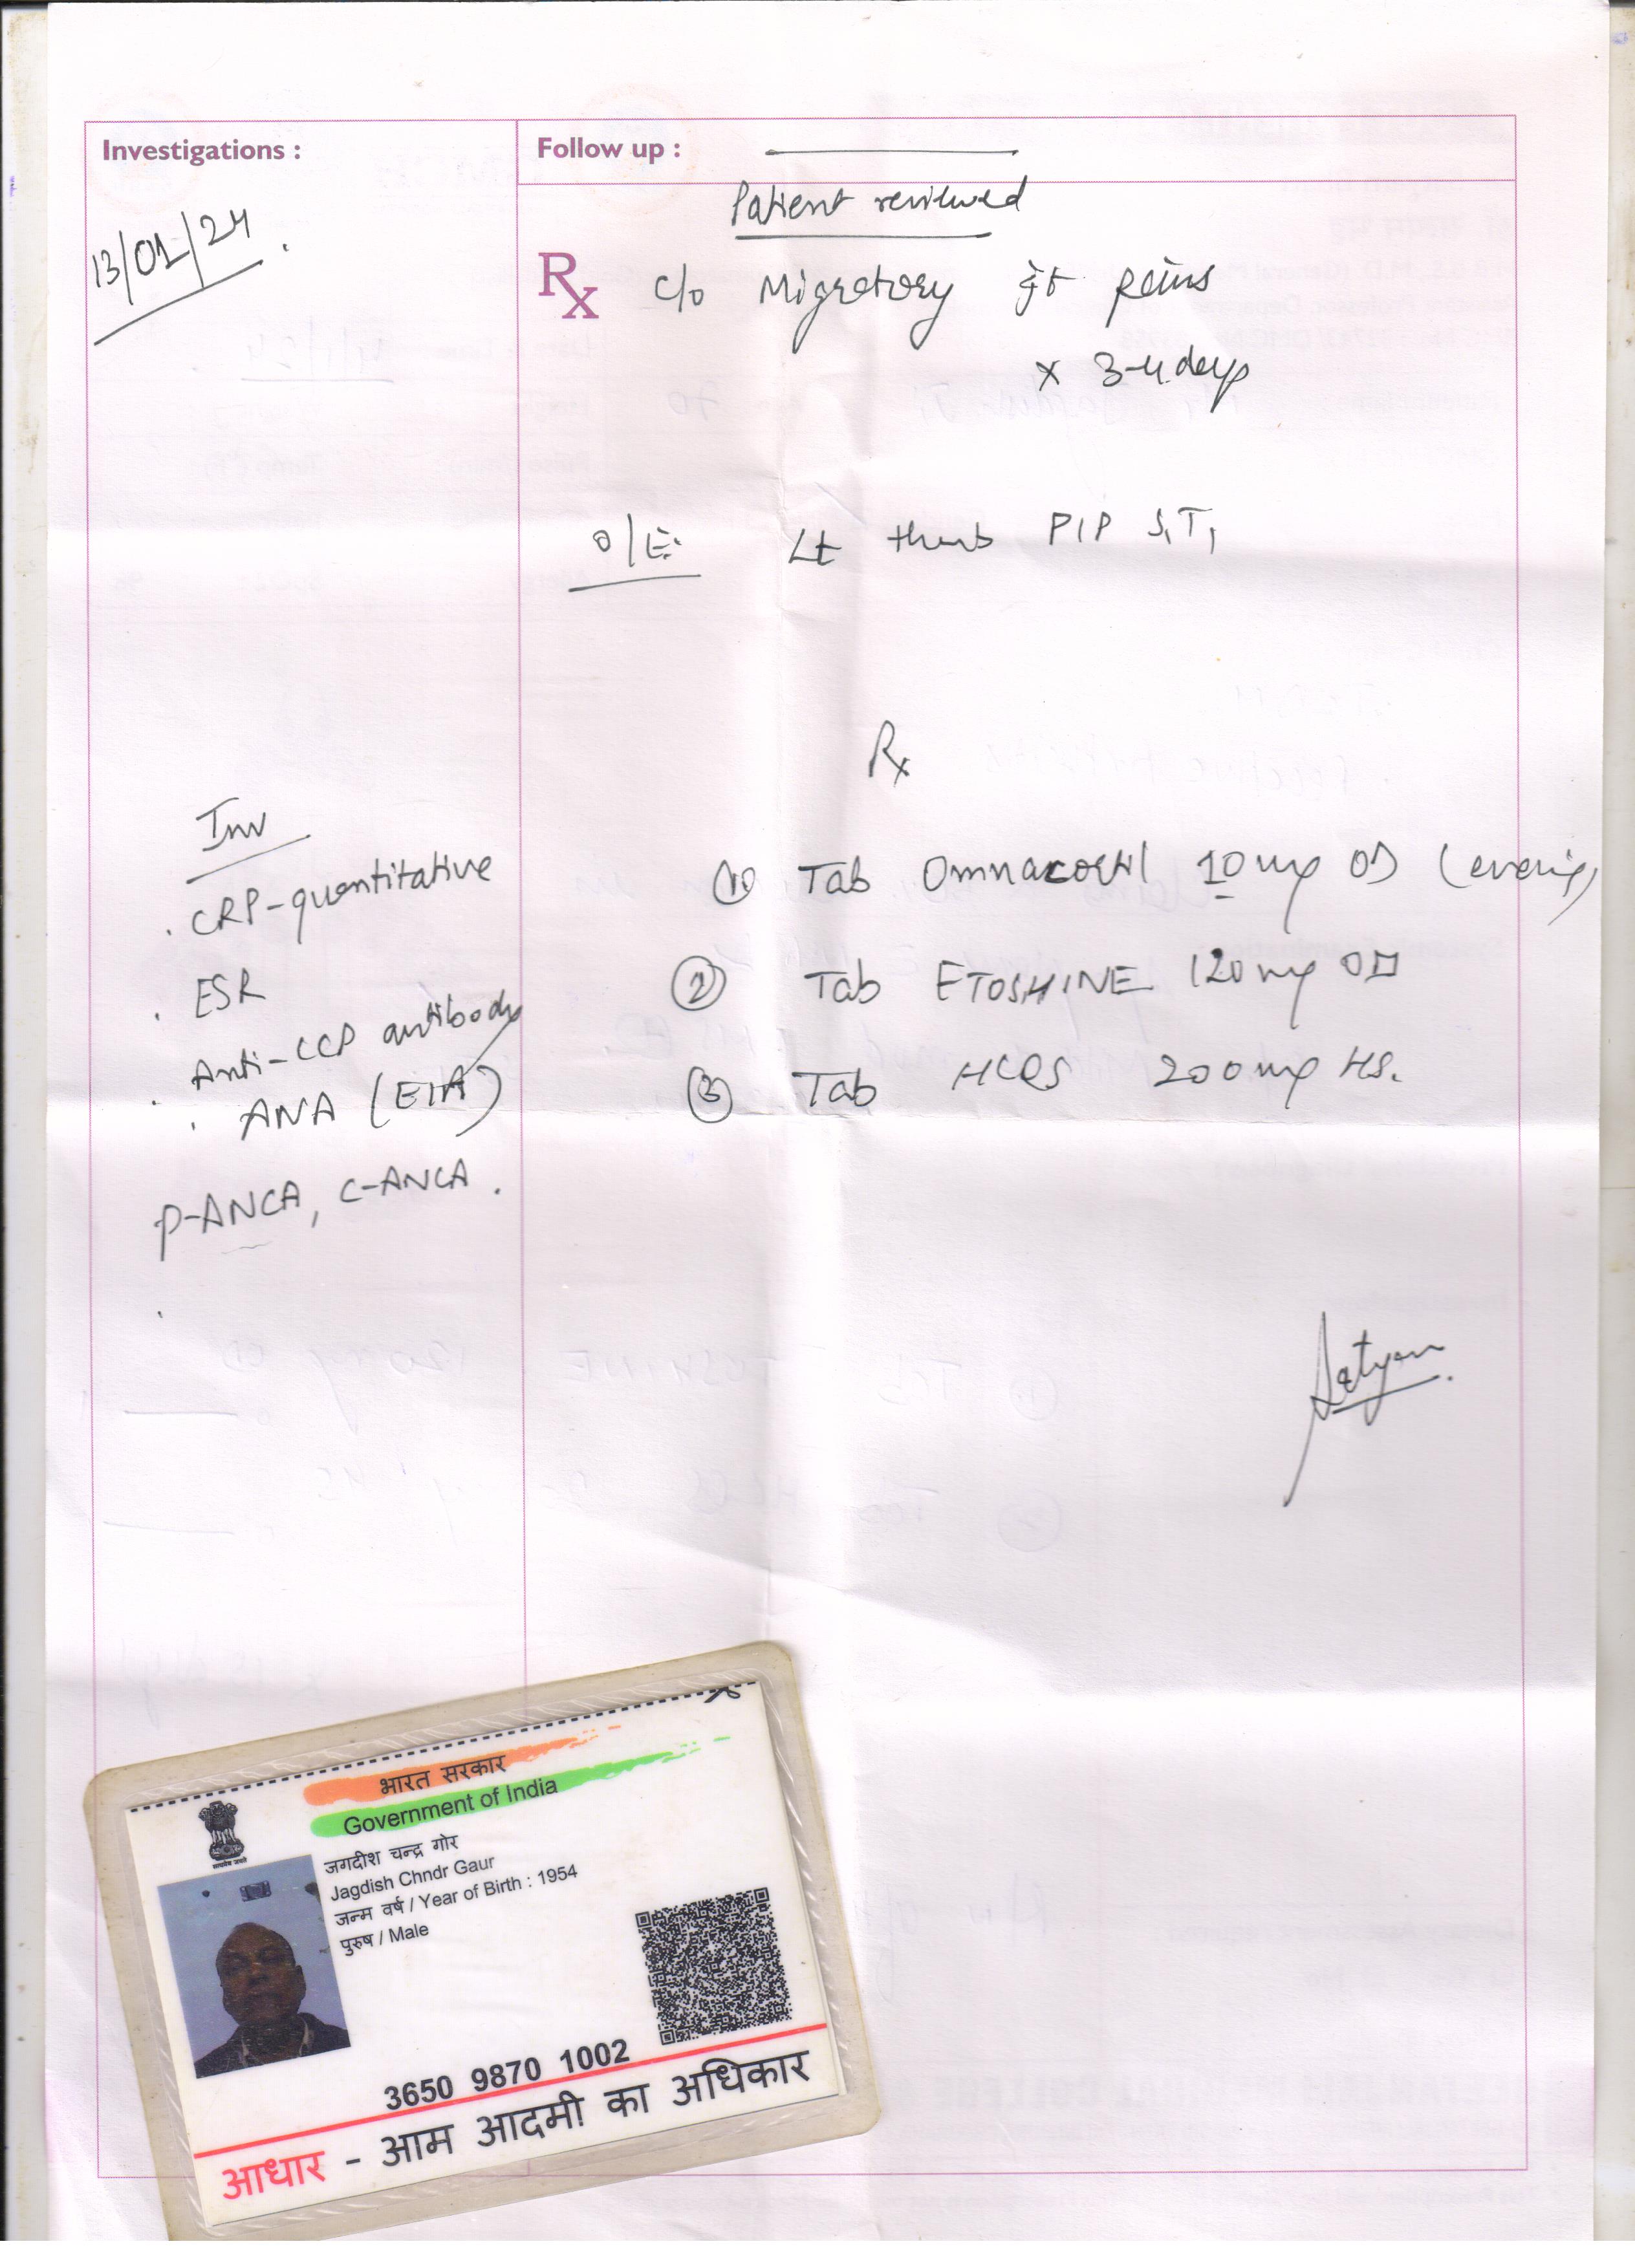 Investigations :
Follow up :
13/01/24
Patient reviewed
Rx c/o Migratory jt pains
x 3-4 days
O/E: Lt thumb PIP S1T1
Rx
Inv
. CRP-quantitative
. ESR
. Anti-CCP antibody
. ANA (EIA)
P-ANCA, C-ANCA.
① Tab Omnacortil 10 mg OD (evening)
② Tab ETOSHINE 120 mg OD
③ Tab HCQS 200 mg HS.
Satyam
भारत सरकार
Government of India
सत्यमेव जयते
जगदीश चन्द्र गोर
Jagdish Chndr Gaur
जन्म वर्ष / Year of Birth : 1954
पुरुष / Male
3650 9870 1002
आधार - आम आदमी का अधिकार